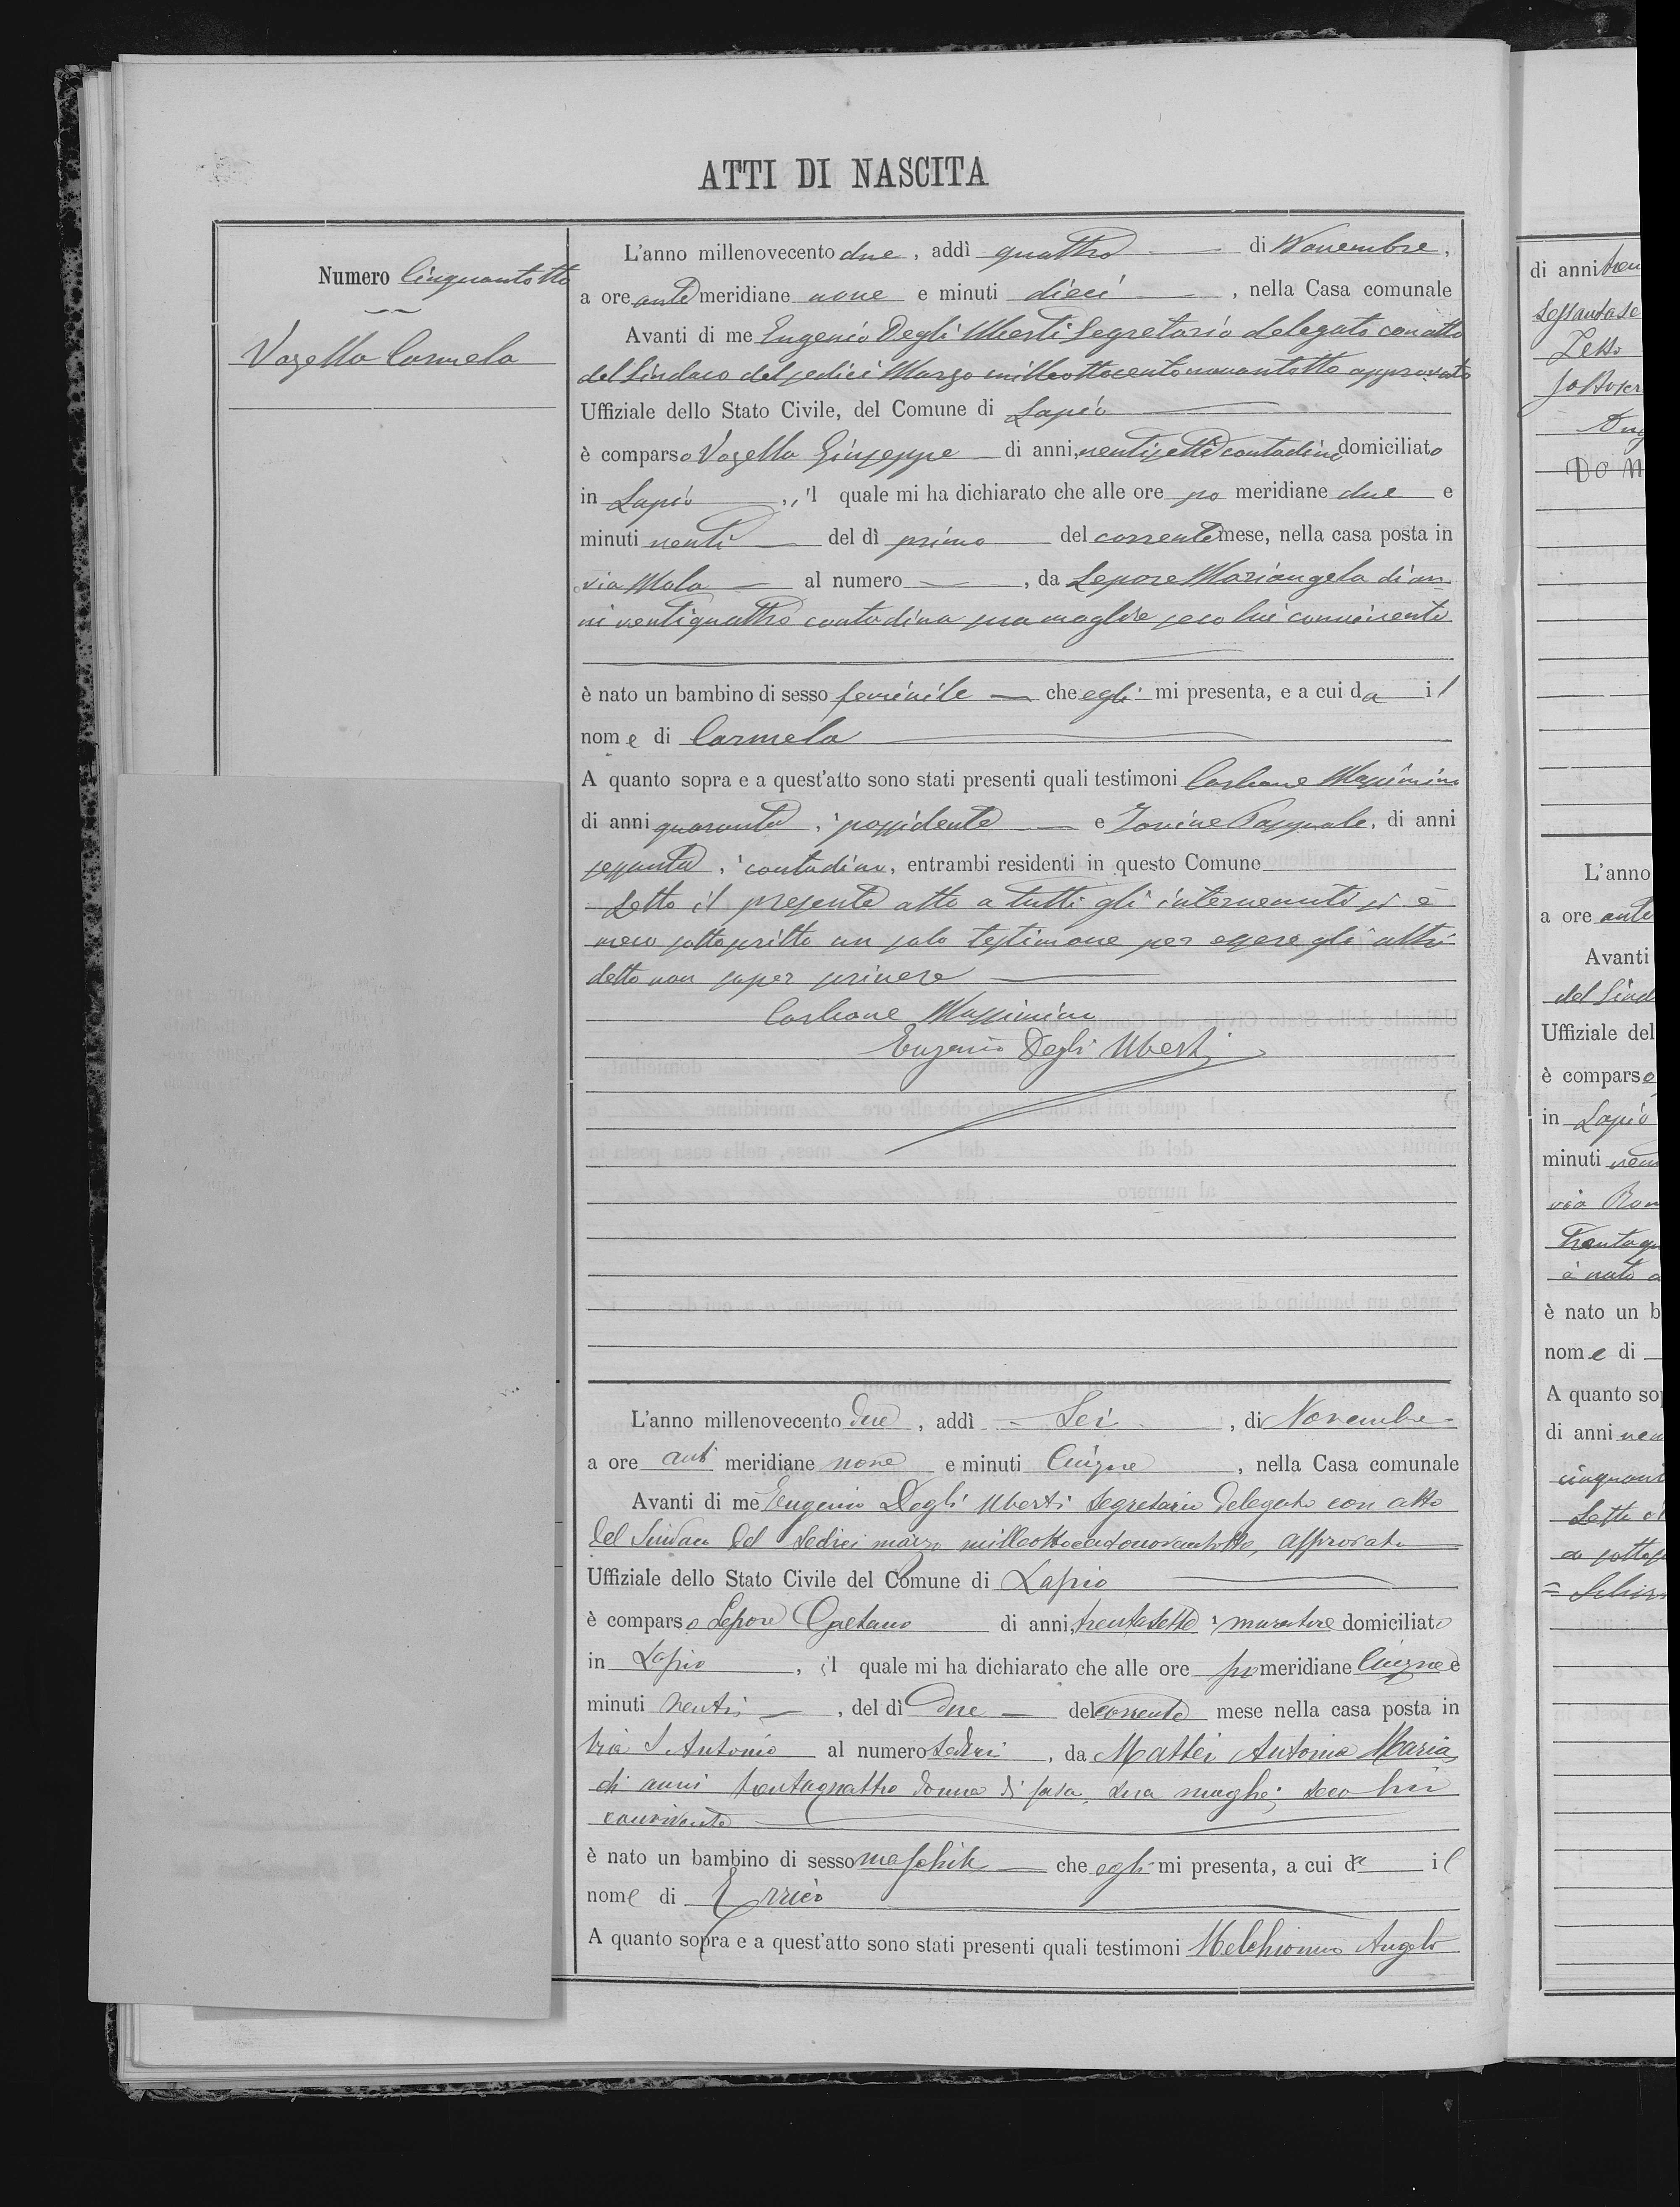 ATTI DI NASCITA
Numero Cinquantotto
Vozella Carmela
L'anno millenovecento due, addì quattro di Novembre,
a ore ante meridiane nove e minuti dieci, nella Casa comunale
Avanti di me Eugenio Degli Uberti Segretario delegato con atto
del Sindaco del sedici Marzo milleottocentonovantotto approvato
Uffiziale dello Stato Civile, del Comune di Lapio
è comparso Vozella Giuseppe di anni, ventisette contadino domiciliato
in Lapio, il quale mi ha dichiarato che alle ore po meridiane due e
minuti venti del dì primo del corrente mese, nella casa posta in
via Mola al numero , da Lepore Mariangela di an
ni ventiquattro contadina sua moglie seco lui convivente
è nato un bambino di sesso feminile che egli mi presenta, e a cui da il
nome di Carmela
A quanto sopra e a quest'atto sono stati presenti quali testimoni Carbone Massimino
di anni quaranta, possidente e Iovine Pasquale, di anni
sessanta, contadino, entrambi residenti in questo Comune
Letto il presente atto a tutti gli intervenuti si è
meco sottoscritto un solo testimone per essere gli altri
detto non saper scrivere
Carbone Massimino
Eugenio Degli Uberti
L'anno millenovecento due, addì Sei, di Novembre
a ore anti meridiane nove e minuti Cinque, nella Casa comunale
Avanti di me Eugenio Degli Uberti Segretario Delegato con atto
del Sindaco del Sedici marzo milleottocentonovantotto, approvato
Uffiziale dello Stato Civile del Comune di Lapio
è comparso Lepore Gaetano di anni, trentasette muratore domiciliato
in Lapio, il quale mi ha dichiarato che alle ore po meridiane Cinque e
minuti venti, del dì due del corrente mese nella casa posta in
via S Antonio al numero sedici, da Mattei Antonia Maria
di anni trentaquattro donna di casa, sua moglie, seco lui
convivente
è nato un bambino di sesso maschile che egli mi presenta, a cui da il
nome di Errico
A quanto sopra e a quest'atto sono stati presenti quali testimoni Melchionno Angelo
di anni
Letto
L'anno
a ore ante
Avanti
del Sind
Uffiziale del
è comparso
in Lapio
minuti
via
è nato un b
nome di
A quanto sop
di anni
Letto